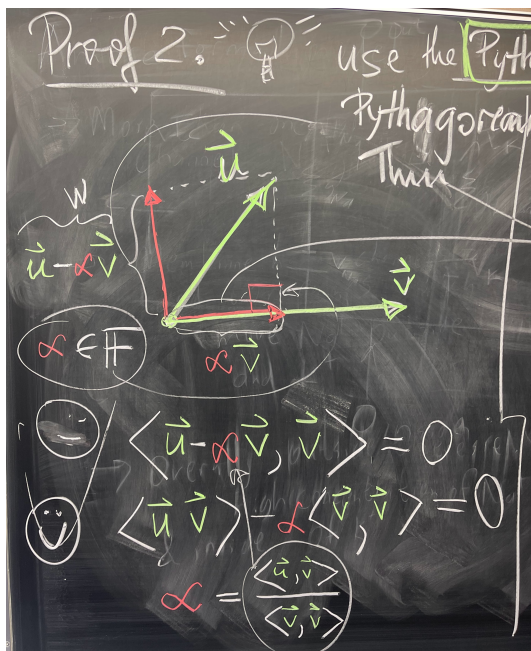 Proof 2. use the Pyth
Pythagorean
Thm
u⃗
W
u⃗ - αv⃗
v⃗
α ∈ F
αv⃗
⟨u⃗ - αv⃗, v⃗⟩ = 0
⟨u⃗ v⃗⟩ - α⟨v⃗, v⃗⟩ = 0
α = ⟨u⃗, v⃗⟩ / ⟨v⃗, v⃗⟩